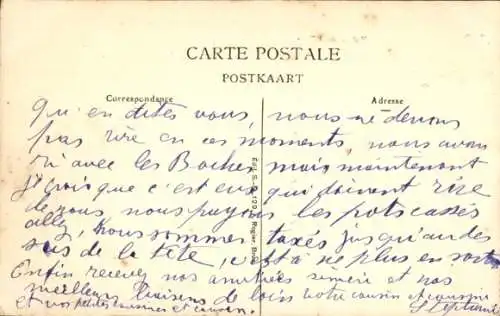 CARTE POSTALE
POSTKAART
Correspondance
Adresse
qu'en dites vous, nous ne devons
pas rire en ces moments, nous avons
ri avec les Boches mais maintenant
je crois que c'est eux qui doivent rire
de nous, nous payons les pots cassés
allez, nous sommes taxés jusqu'au des
sus de la tête, c'est à ne plus en sortir
Enfin recevez nos amitiés sincères et nos
meilleurs baisers de loin votre cousin et cousine
et nos petites cousines et cousin.